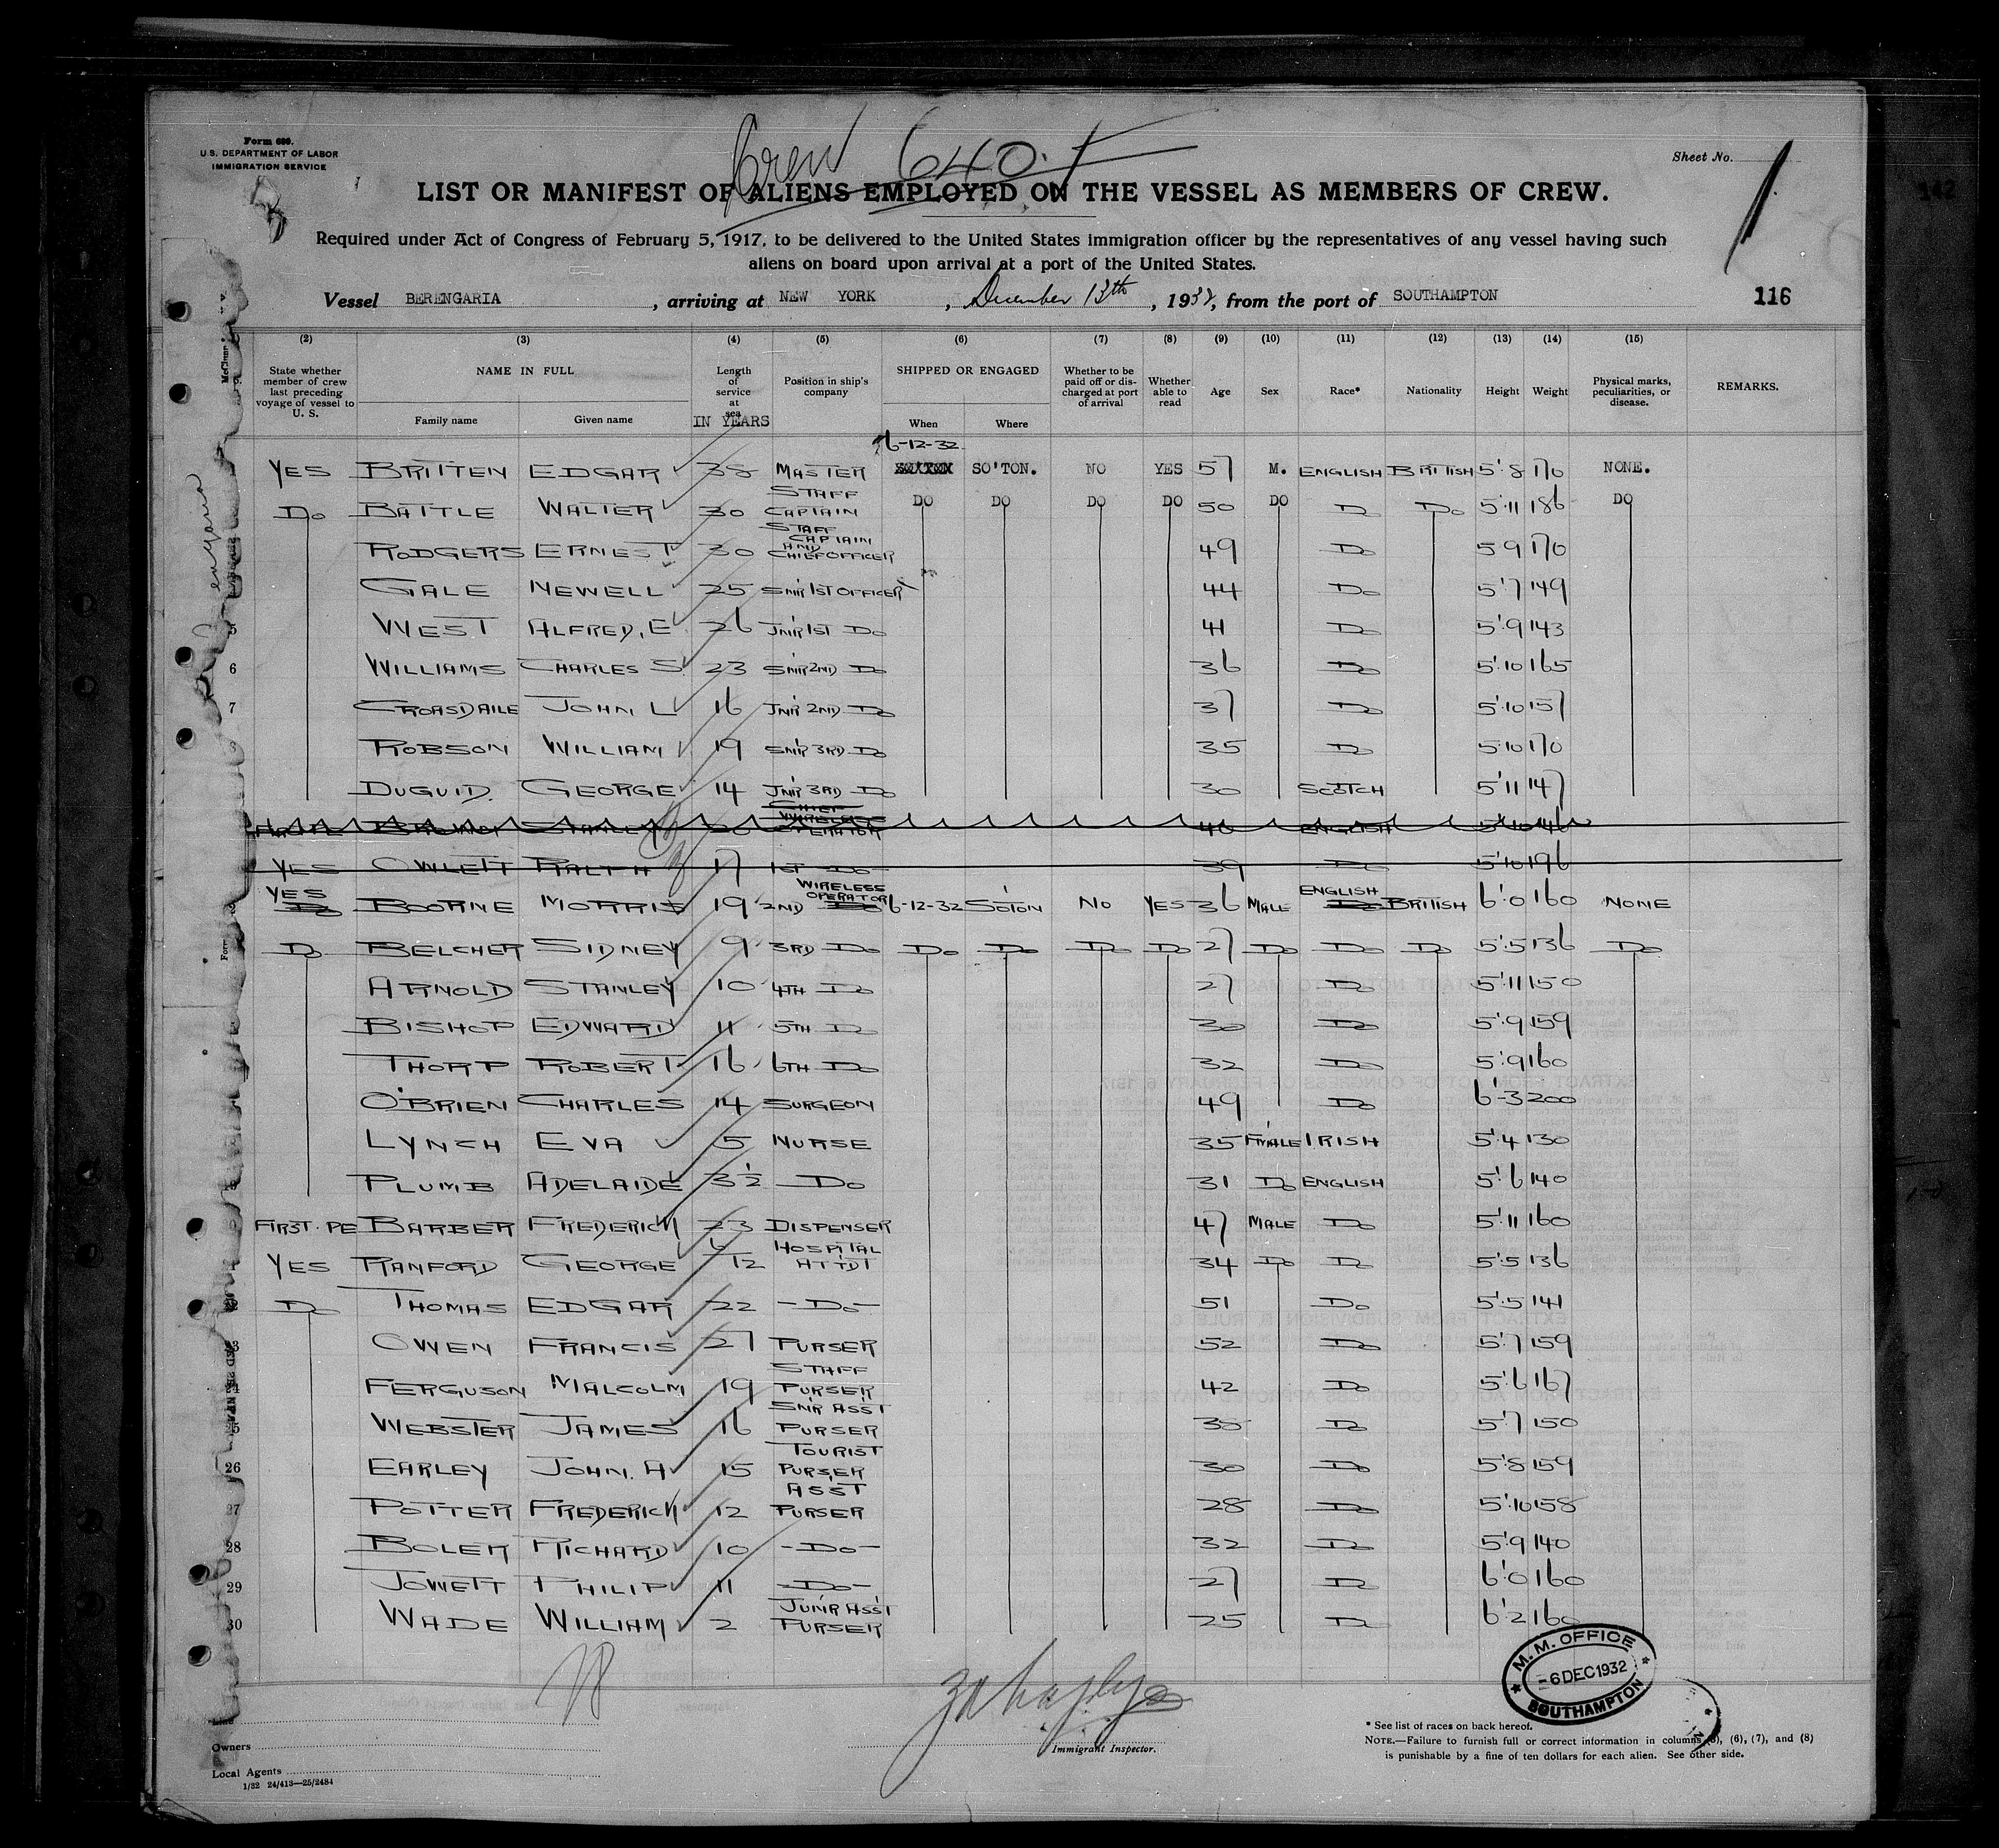 Form 680.
U.S. DEPARTMENT OF LABOR
IMMIGRATION SERVICE
Crew 640.
Sheet No. 1
LIST OR MANIFEST OF ALIENS EMPLOYED ON THE VESSEL AS MEMBERS OF CREW.
142
Required under Act of Congress of February 5, 1917, to be delivered to the United States immigration officer by the representatives of any vessel having such
aliens on board upon arrival at a port of the United States.
Vessel BERENGARIA, arriving at NEW YORK, December 13th, 1932, from the port of SOUTHAMPTON 116
(2) (3) (4) (5) (6) (7) (8) (9) (10) (11) (12) (13) (14) (15)
State whether member of crew last preceding voyage of vessel to U. S. NAME IN FULL Family name Given name Length of service at sea IN YEARS Position in ship's company SHIPPED OR ENGAGED When Where Whether to be paid off or discharged at port of arrival Whether able to read Age Sex Race* Nationality Height Weight Physical marks, peculiarities, or disease. REMARKS.
6-12-32
YES BRITTEN EDGAR 38 MASTER SO'TON. NO YES 57 M. ENGLISH BRITISH 5'8 170 NONE.
DO BATTLE WALTER 30 STAFF CAPTAIN DO DO DO DO 50 DO DO DO 5'11 186 DO
RODGERS ERNEST 30 STAFF CAPTAIN AND CHIEF OFFICER 49 DO 5'9 170
GALE NEWELL 25 SNR 1ST OFFICER 44 DO 5'7 149
5 WEST ALFRED, E 26 JNR 1ST DO 41 DO 5'9 143
6 WILLIAMS CHARLES S. 23 SNR 2ND DO 36 DO 5'10 165
7 CROASDAILE JOHN L 16 JNR 2ND DO 37 DO 5'10 157
8 ROBSON WILLIAM 19 SNR 3RD DO 35 DO 5'10 170
DUGUID. GEORGE 14 JNR 3RD DO 30 SCOTCH 5'11 147
CHIEF WIRELESS OPERATOR 40 ENGLISH 5'10 146
YES OWLETT RALPH 17 1ST DO 39 DO 5'10 196
YES BOORNE MORRIS 19 2ND WIRELESS OPERATOR 6-12-32 SOTON NO YES 36 MALE ENGLISH BRITISH 6'0 160 NONE
DO BELCHER SIDNEY 9 3RD DO DO DO DO DO 27 DO DO DO 5'5 136 DO
ARNOLD STANLEY 10 4TH DO 27 DO 5'11 150
BISHOP EDWARD 11 5TH DO 30 DO 5'9 159
THORP ROBERT 16 6TH DO 32 DO 5'9 160
O'BRIEN CHARLES 14 SURGEON 49 DO 6'-3 200
LYNCH EVA 5 NURSE 35 F'MALE IRISH 5'4 130
PLUMB ADELAIDE 3½ DO 31 DO ENGLISH 5'6 140
FIRST. PE BARBER FREDERICK 23 DISPENSER 47 MALE DO 5'11 160
YES RANFORD GEORGE 6/12 HOSPITAL ATTDT 34 DO DO 5'5 136
DO THOMAS EDGAR 22 -DO- 51 DO 5'5 141
OWEN FRANCIS 27 PURSER 52 DO 5'7 159
FERGUSON MALCOLM 19 STAFF PURSER 42 DO 5'6 167
25 WEBSTER JAMES 16 SNR ASST PURSER 38 DO 5'7 150
26 EARLEY JOHN. A 15 TOURIST PURSER 30 DO 5'8 159
27 POTTER FREDERICK 12 ASST PURSER 28 DO 5'10 158
28 BOLER RICHARD 10 -DO- 32 DO 5'9 140
29 JOWETT PHILIP 11 -DO- 27 DO 6'0 160
30 WADE WILLIAM 2 JUNR ASST PURSER 25 DO 6'2 160
M. M. OFFICE
-6 DEC 1932
SOUTHAMPTON
Line
Owners
Local Agents
1/32 24/413—25/2484
Immigrant Inspector.
* See list of races on back hereof.
NOTE.—Failure to furnish full or correct information in columns (5), (6), (7), and (8)
is punishable by a fine of ten dollars for each alien. See other side.